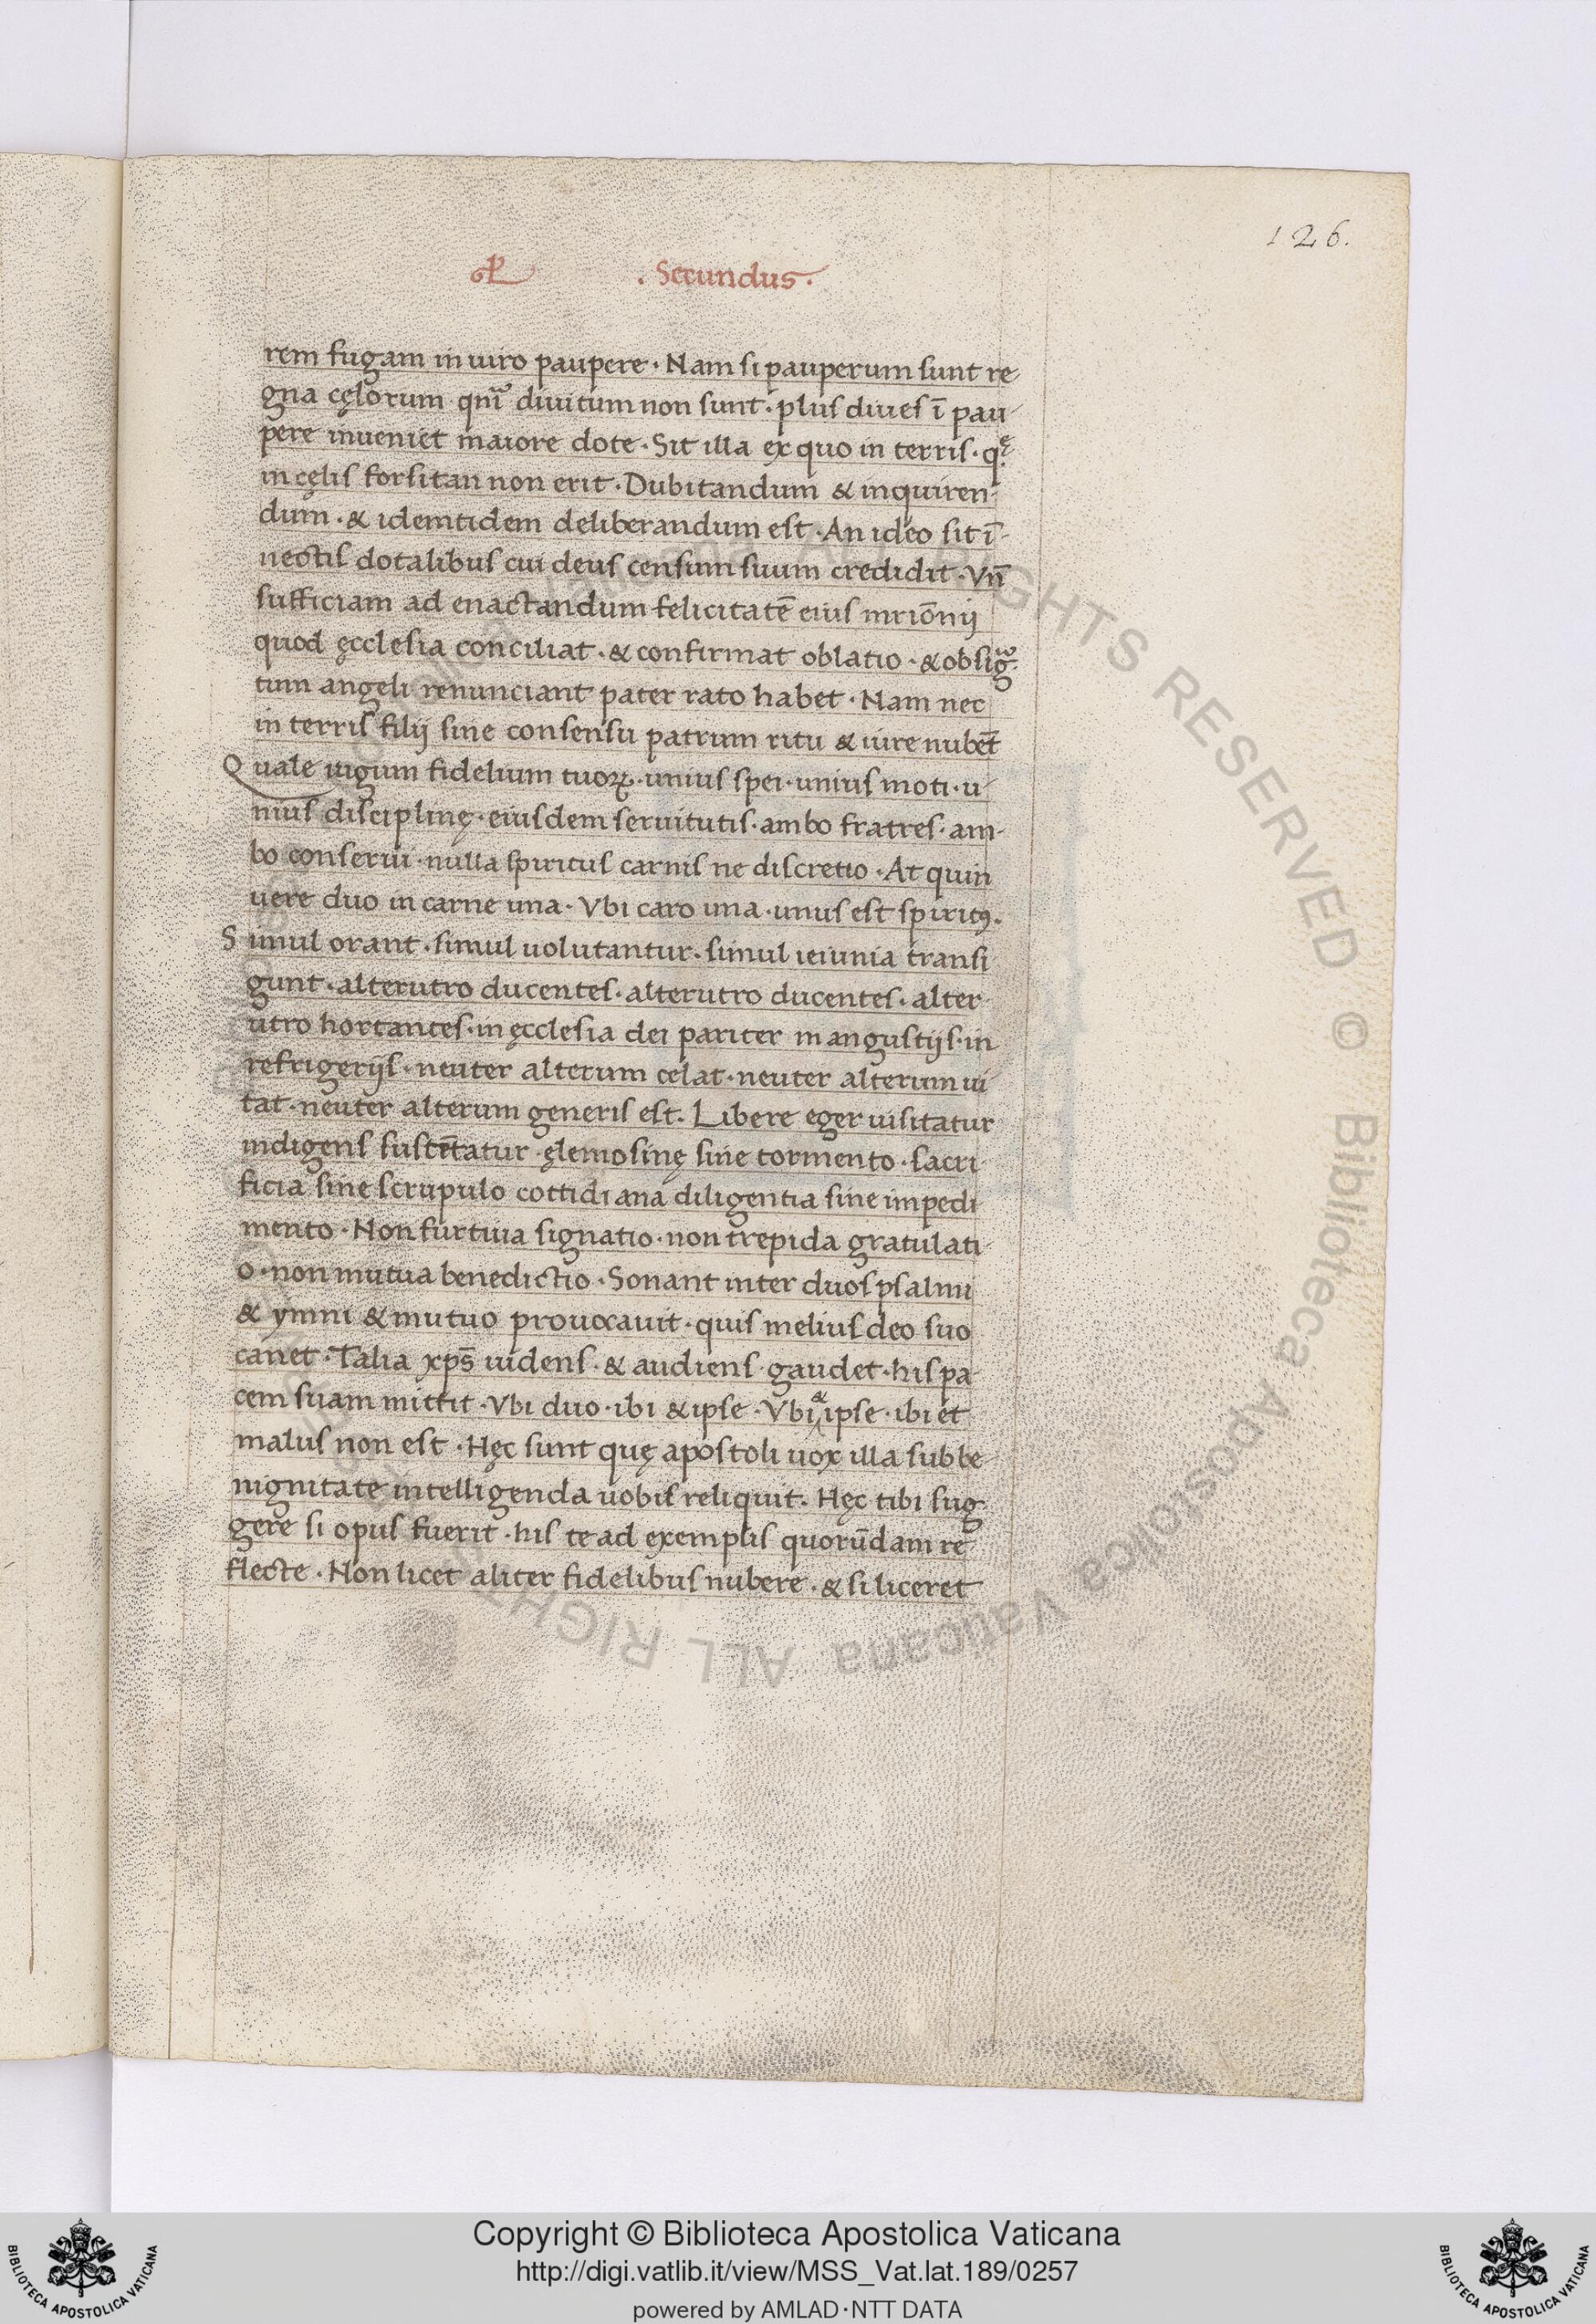 126.
. Secundus.
rem fugam in uiro paupere · Nam si pauperum sunt re
gna cęlorum qm̄ diuitum non sunt · plus diues ī pau
pere inueniet maiore dote · Sit illa ex quo in terris · q
in cęlis forsitan non erit · Dubitandum & inquiren
dum · & idemtidem deliberandum est · An ideo sit ī
nectis dotalibus cui deus censum suum credidit · Vn̄
sufficiam ad enactandum felicitatē eius mriōnij
quod ęcclesia conciliat · & confirmat oblatio · & obsig
tum angeli renunciant pater rato habet · Nam nec
in terris filij sine consensu patrum ritu & iure nubēt
Quale iugum fidelium tuoꝝ · unius spei · unius moti · u
nius disciplinę · eiusdem seruitutis · ambo fratres · am
bo conserui · nulla spiritus carnis ne discretio · At quin
uere duo in carne una · Vbi caro una · unus est spiritꝰ.
Simul orant · simul uolutantur · simul ieiunia transi
gunt · alterutro ducentes · alterutro ducentes · alter
utro hortantes · in ęcclesia dei pariter in angustijs · in
refrigerijs · neuter alterum celat · neuter alterum ui
tat · neuter alterum generis est. Libere eger uisitatur
indigens sustētatur ęlemosinę sine tormento · sacri
ficia sine scrupulo cottidiana diligentia sine impedi
mento · Non furtiua signatio · non trepida gratulati
o · non mutua benedictio · Sonant inter duos psalmi
& ymni & mutuo prouocauit · quis melius deo suo
canet · Talia xp̄s uidens · & audiens gaudet · his pa
cem suam mittit · Vbi duo · ibi & ipse · Vbi & ipse · ibi et
malus non est · Hęc sunt quę apostoli uox illa sub be
nignitate intelligenda uobis reliquit. Hęc tibi sug
gere si opus fuerit · his te ad exemplis quorūdam re
flecte · Non licet aliter fidelibus nubere · & si liceret
ALL RIGHTS RESERVED © Biblioteca Apostolica Vaticana
Copyright © Biblioteca Apostolica Vaticana
http://digi.vatlib.it/view/MSS_Vat.lat.189/0257
powered by AMLAD·NTT DATA
BIBLIOTECA APOSTOLICA VATICANA
BIBLIOTECA APOSTOLICA VATICANA